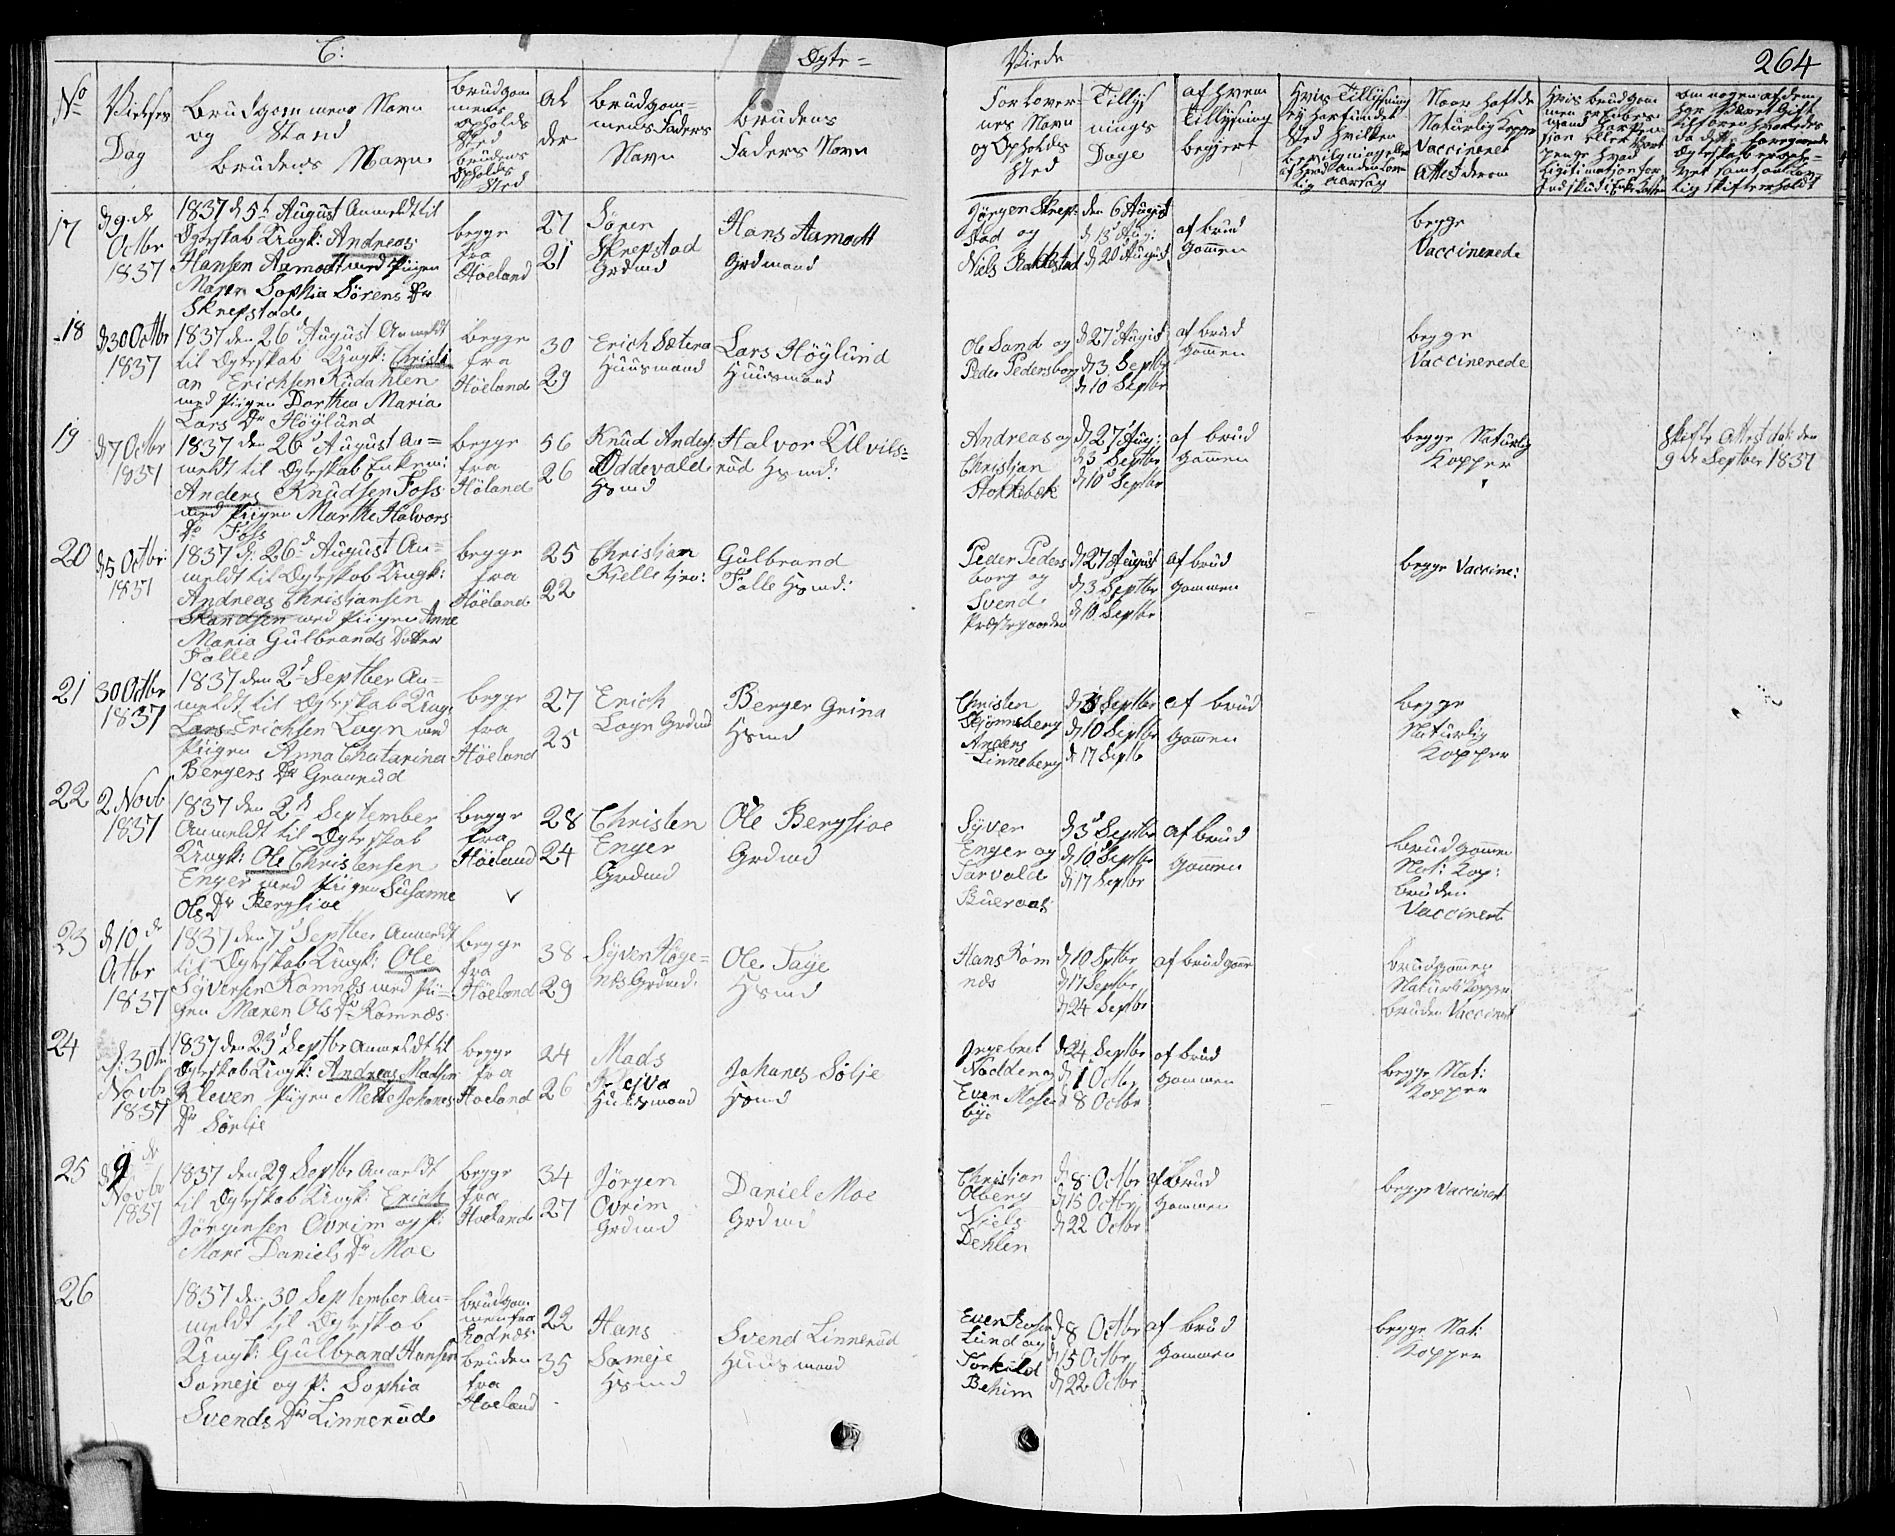 C:
Ægte=
Viede
264
No
Vielses
Dag
Brudgommens Navn
og Stand
Brudens Navn
Brudgom
mens
opholds
Sted
brudens
Opholds
Sted
Al
der
Brudgom-
mens Faders
Navn
Brudens
Faders Navn
Forlover-
nes Navn
og Opholds
Sted
Tillys
nings
Dage
af hvem
Tillysning
begjert
Hvis Tillysning
ej har fundet
Sted hvilken
bevilgning eller
Naar hafdt
Naturlig Kopper
Vaccineret
Attest derom
17
d 9 de
Octbr
1837
1837 d 5t August Anmeldt til
Ægteskab Ungk: Andreas
Hansen Aamodt med Piigen
Maren Sophia Sørens Dr
Skrepstad
begge
fra
Høeland
27
21
Søren
Skrepstad
Grdmd
Hans Aamodt
Grdmand
Jørgen Skrep-
stad og
Niels Rakkestad
den 6 August
d 13 Aug:
d 20 August
af brud
Gommen
begge
Vaccinerede
18
d 30 Octbr
1837
1837 den 26 August Anmeldt
til Ægteskab Ungk: Christi
an Erichsen Rudahlen
med Piigen Dorthea Maria
Lars Dr Høylund
begge
fra
Høeland
30
29
Erich Sætera
Huusmand
Lars Höylund
Huusmand
Ole Sand og
Peder Pedersborg
d 27 August
d 3 Septbr
d 10 Septbr
af brud
Gommen
begge
Vaccinerede
19
d 7 Octbr
1837
1837 den 26 August An=
meldt til Ægteskab Enkem:
Anders Knudsen Foss
med Piigen Marthe Halvors
Dr Foss
begge
fra
Høland
56
26
Knud Anders
Oddevald
Hsmd
Halvor Ulvils=
rud Hsmd:
Andreas og
Christjan
Stokkebek
d 27 Aug:
d 3 Septbr
d 10 Septbr
af brud
Gommen
begge Naturlig
Kopper
Skifte Attest dat: den
9 de Septbr 1837
20
d 5 Octbr
1837
1837 d 26 August An=
meldt til Ægteskab Ungk:
Andreas Christjansen
Skandsen med Piigen Anne
Maria Gulbrands Datter
Falle
begge
fra
Høeland
25
22
Christjan
Kjelle
Gulbrand
Falle Hsmd:
Peder Peders
borg og
Svend
Præstegaarden
d 27 August
d 3 Septbr
d 10 Septbr
af brud
Gommen
begge Vaccine:
21
30 Octbr
1837
1837 den 2 Septber An=
meldt til Ægteskab Ungk
Lars Erichsen Logn med
Piigen Anna Chatarina
Bergers Dr Graarud
begge
fra
Høeland
27
25
Erich
Logn Grdmd
Berger Grina
Hsmd
Christen
Skjønneberg
Anders
Linneberg
d 3 Septbr
d 10 Septbr
d 17 Septb
af brud
Gommen
begge
Naturlig
Kopper
22
2 Novb
1837
1837 den 2 September
Anmeldt til Ægteskab
Ungk: Ole Christensen
Enger med Piigen Susanne
Ols Dr Bergsioe
begge
fra
Høeland
28
24
Christen
Enger
Grdmd
Ole Bergsioe
Grdmd
Syver
Enger og
Tarvald
Bueraas
d 3 Septbr
d 10 Septbr
d 17 Septbr
af brud
Gommen
brudgommen
Nat: Kop:
bruden
Vaccinert
23
d 10 de
Octbr
1837
1837 den 7 Septber Anmeldt
til Ægteskab Ungk: Ole
Syversen Komnæs med Pii=
gen Maren Ols Dr Komnæs
begge
fra
Høeland
38
29
Syver Høge=
næs Grdmd.
Ole Taje
Hsmd
Hans Kom
næs
d 10 Septbr
d 17 Septbr
d 24 Septbr
af brudgomm
brudgommen
Naturl: Kopper
bruden Vaccinert
24
d: 30te
Novbr
1837
1837 den 23 Septbr Anmeldt til
Ægteskab Ungk: Andreas Madsen
Kleven Piigen Mette Johanes
Dr Sørlie
begge
fra
Høeland
24
26
Mads
Huusmand
Johanes Sølje
Hsmd
Ingebret
Nodden og
Even Mosen
bÿe
d 24 Septbr
d 1 Octbr
d 8 Octbr
af brud
Gommen
begge Nat:
Kopper
25
d 9 de
Novbr
1837
1837 den 29 Septbr Anmeldt
til Ægteskab Ungk: Erich
Jørgensen Ovrim og P:
Mari Daniels Dr Moe
begge
fra
Høeland
34
27
Jørgen
Ovrim
Grdmd
Daniel Moe
Grdmd
Christjan
Olberg
Niels
Dehlen
d 8 Octbr
d 15 Octbr
d 22 Octbr
af brud
Gommen
begge Vaccinert
26
1837 den 30 September An=
meldt til Ægteskab
Ungk: Gulbrand Hansen
Someje og P: Sophia
Svends Dr Linnerud
brudgom
men fra
Eodnæs
bruden
fra
Høeland
22
35
Hans
Someje
Hsmd
Svend Linnerud
Huusmand
Even Rosen
Lund og
Torkild
Behim
d 8 Octbr
d 15 Octbr
d 22 Octbr
af brud
Gommen
begge Nat:
Kopper